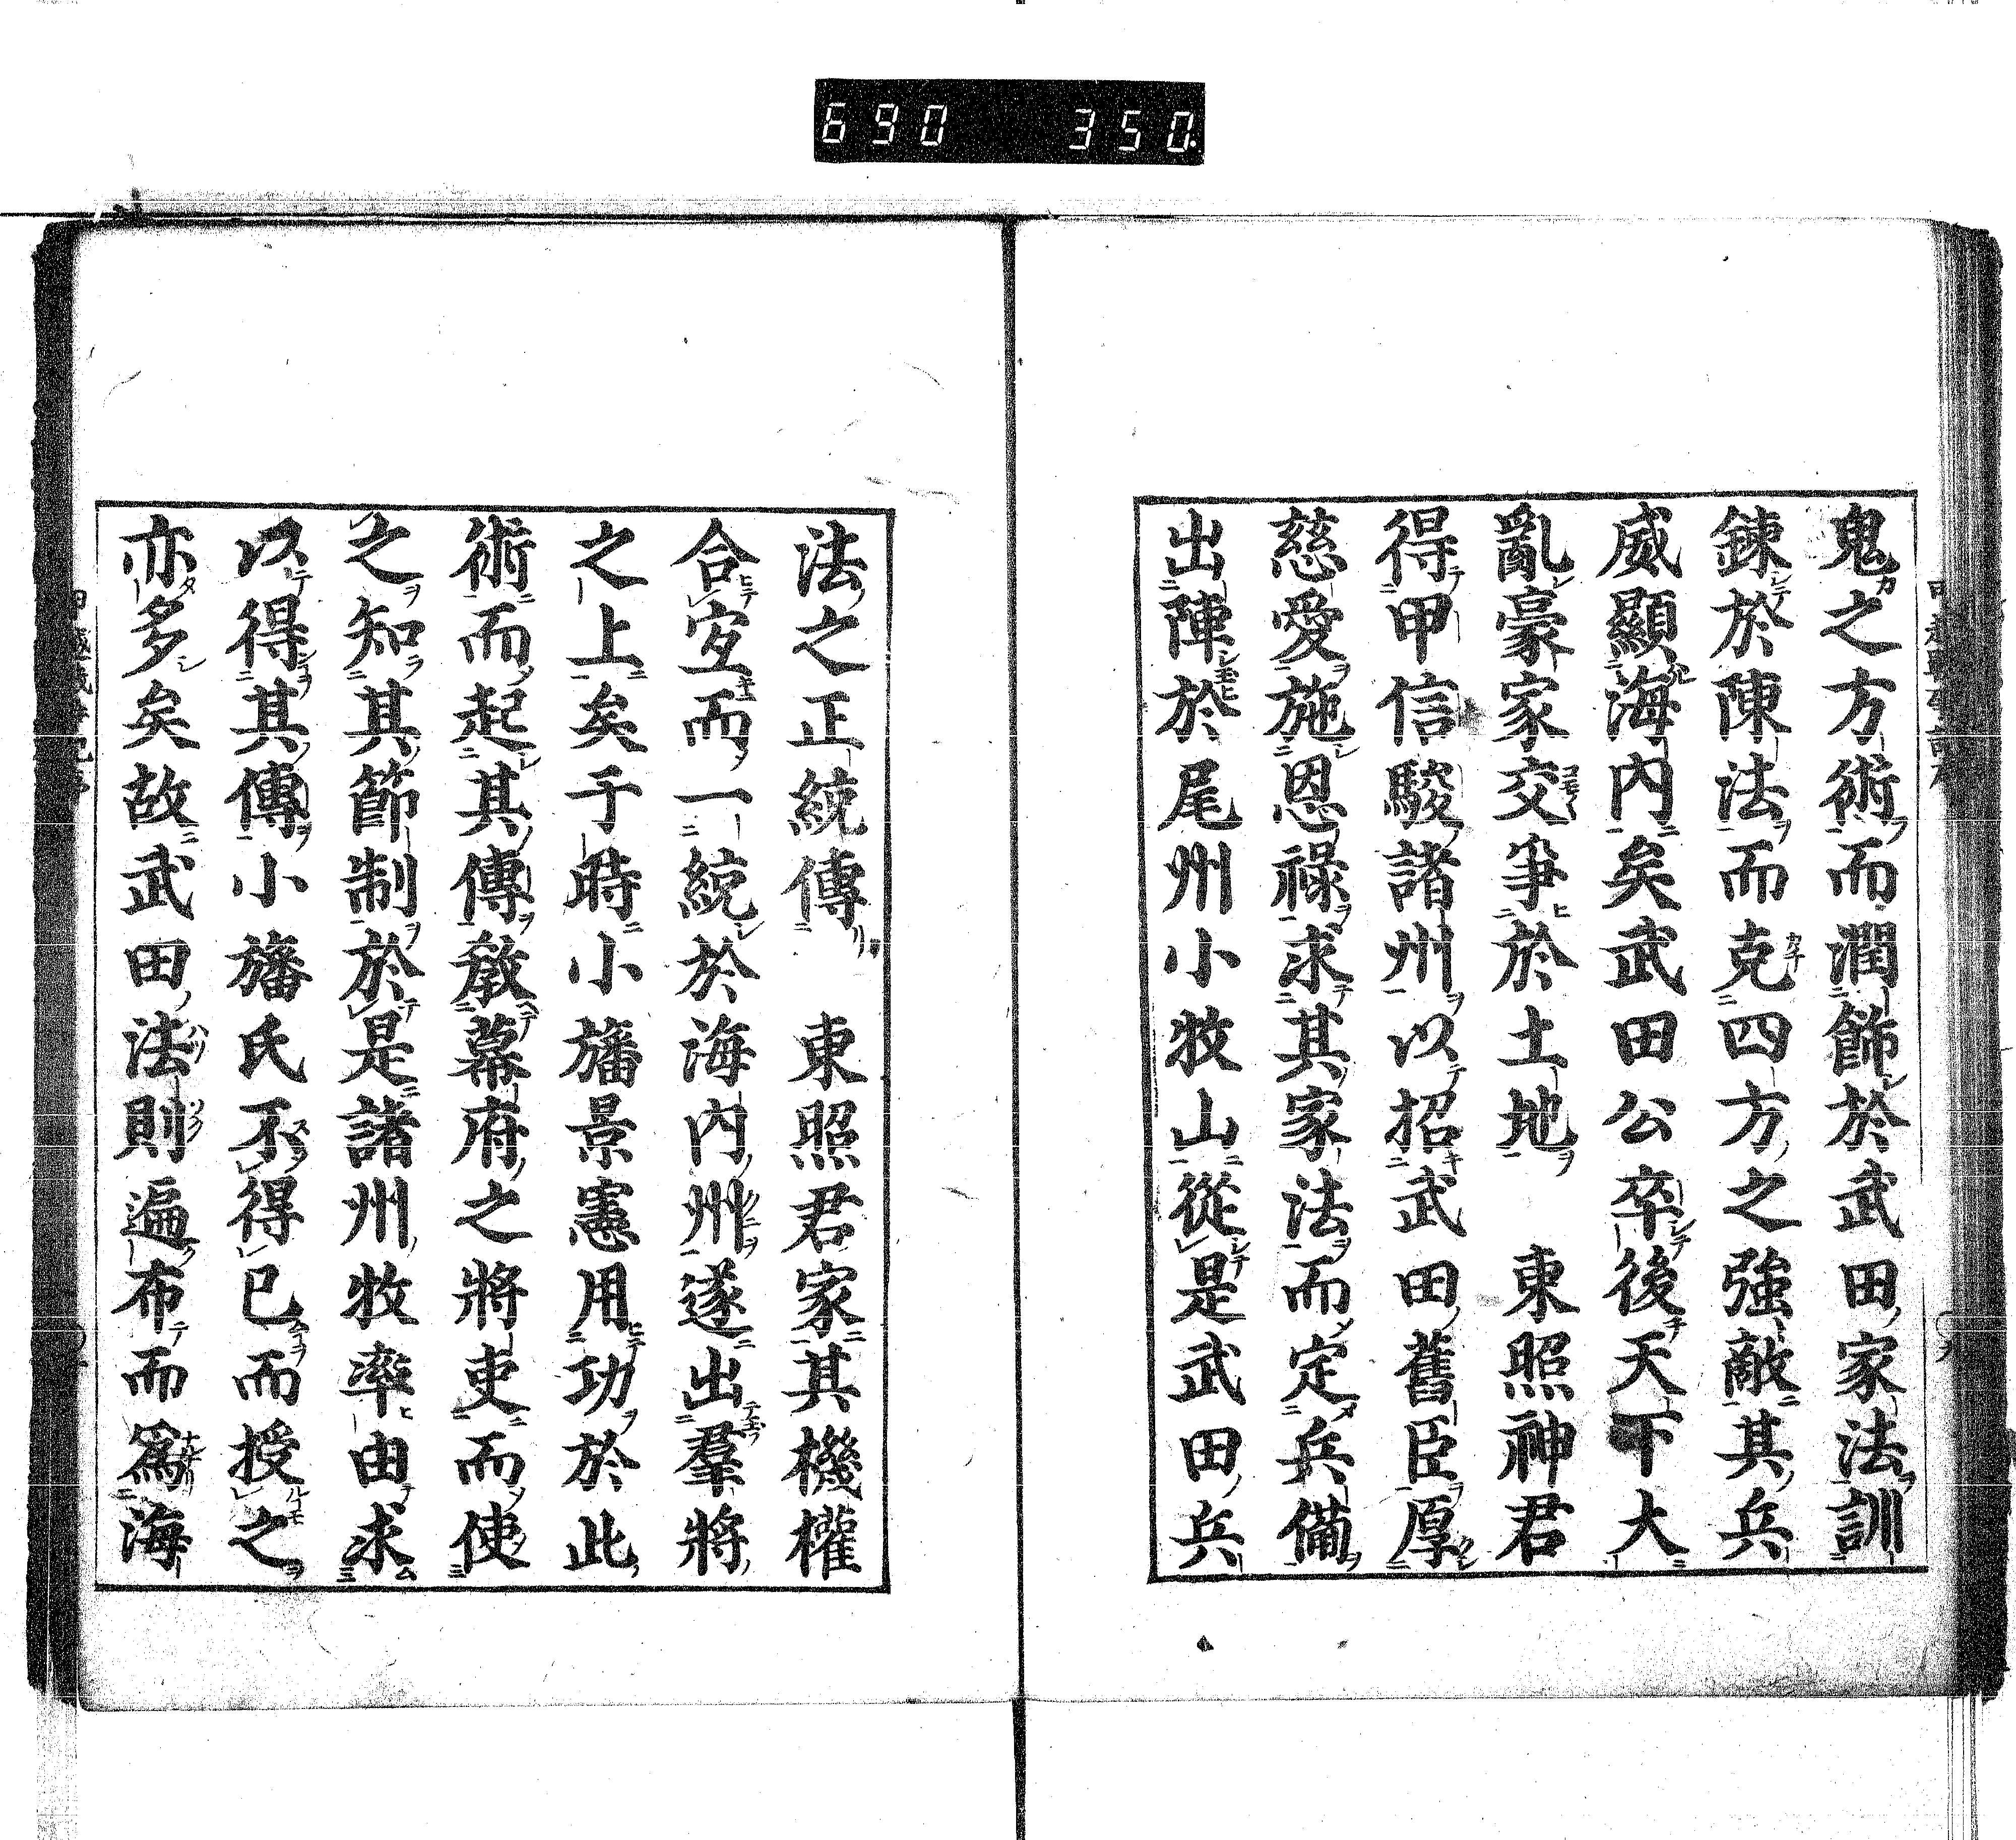 690 350
鬼之方術而潤飾於武田家法訓
鍊於陳法而克四方之強敵其兵
威顯海內矣武田公卒後天下大
亂豪家交爭於土地　東照神君
得甲信駿諸州以招武田舊臣厚
慈愛施恩祿求其家法而定兵備
出陣於尾州小牧山從是武田兵
法之正統傳　東照君家其機權
合宜而一統於海內州遂出羣將
之上矣于時小旛景憲用功於此
術而起其傳教幕府之將吏而使
之知其節制於是諸州牧率由求
以得其傳小旛氏不得已而授之
亦多矣故武田法則遍布而爲海